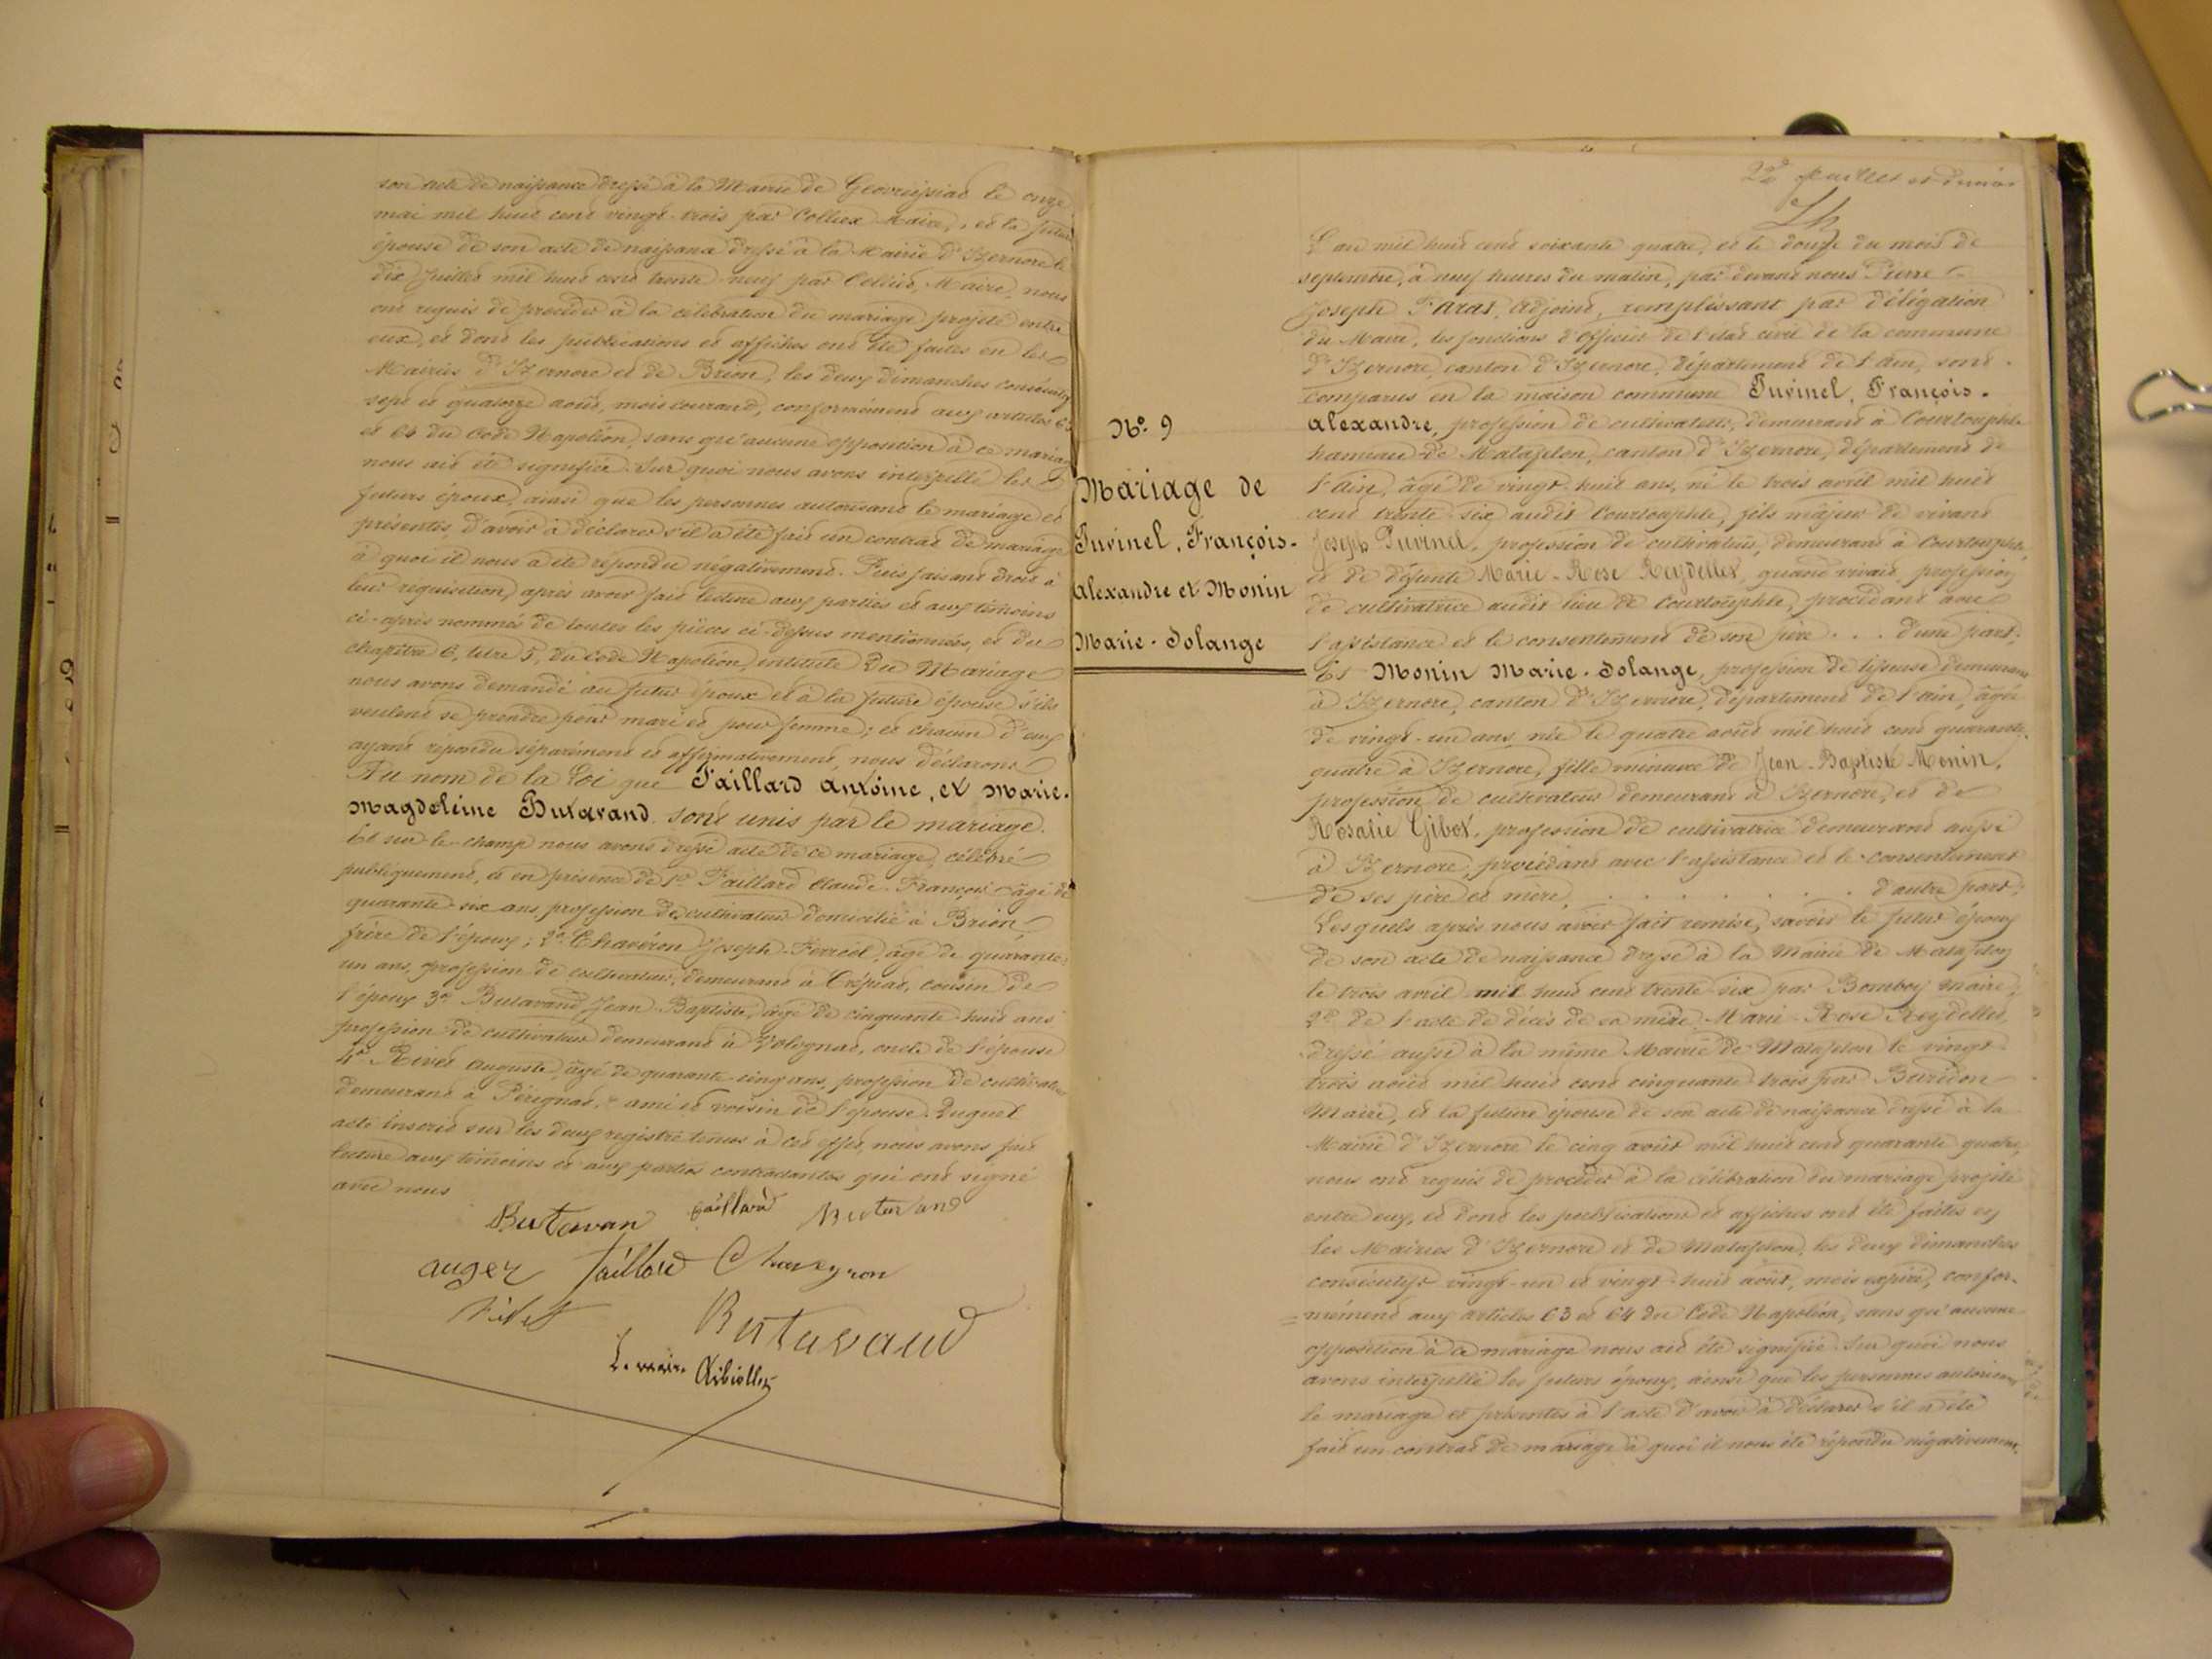 son acte de naissance dressé à la Mairie de Géovreissiat le onze
mai mil huit cent vingt-trois par Colliex Maire, et la future
épouse de son acte de naissance dressé à la Mairie d'Izernore le
dix Juillet mil huit cent trente-neuf par Maire, nous
ont requis de procéder à la célébration du mariage projeté entre
eux, et dont les publications et affiches ont été faites en les
Mairies d'Izernore et de Brion, les deux dimanches consécutifs
sept et quatorze août, mois courant, conformément aux articles 63
et 64 du Code Napoléon, sans qu'aucune opposition à ce mariage
nous ait été signifiée. Sur quoi nous avons interpellé les
futurs époux, ainsi que les personnes autorisant le mariage et
présentes, d'avoir à déclarer s'il a été fait un contrat de mariage
à quoi il nous a été répondu négativement. Puis faisant droit à
leur réquisition, après avoir fait lecture aux parties et aux témoins
ci-après nommés de toutes les pièces ci-dessus mentionnées, et du
chapitre 6, titre 5, du Code Napoléon, intitulé Du Mariage
nous avons demandé au futur époux et à la future épouse s'ils
veulent se prendre pour mari et pour femme; et chacun d'eux
ayant répondu séparément et affirmativement, nous déclarons
Au nom de la Loi que Taillard antoine, et Marie-
Magdeleine Butavand sont unis par le mariage.
Et sur-le-champ nous avons dressé acte de ce mariage, célébré
publiquement, et en présence de 1º Taillard Claude-François âgé de
quarante-six ans, profession de cultivateur domicilié à Brion,
frère de l'époux; 2º Chavéron Joseph-Ferréol, âgé de quarante-
un ans, profession de cultivateur, demeurant à Crépiat, cousin de
l'époux 3º Butavand Jean-Baptiste, âgé de cinquante-huit ans
profession de cultivateur demeurant à Volognat, oncle de l'épouse
4º Rivet Auguste, âgé de quarante-cinq ans, profession de cultivateur
demeurant à Pérignat, ami et voisin de l'épouse. Duquel
acte inscrit sur les deux registre tenus à cet effet, nous avons fait
lecture aux témoins et aux parties contractantes qui ont signé
avec nous
Butavan taillard Butavand
auger taillard Chaveyron
rivet Butavaud
Le maire
Nº. 9
Mariage de
Juvinel, François-
Alexandre et Monin
Marie-Solange
22e feuillet et dernier
L'an mil huit cent soixante quatre, et le douze du mois de
septembre, à neuf heures du matin, par devant nous Pierre
Joseph Farat, Adjoint, remplissant par délégation
du Maire, les fonctions d'officier de l'état civil de la commune
d'Izernore, canton d'Izernore, département de l'Ain, sont
comparus en la maison commune Juvinel, François-
Alexandre, profession de cultivateur, demeurant à Courtouphle
hameau de Matafelon, canton d'Izernore, département de
l'Ain, âgé de vingt-huit ans, né le trois avril mil huit
cent trente-six audit Courtouphle, fils majeur de vivant
Joseph Juvinel, profession de cultivateur, demeurant à Courtouphle,
et de défunte Marie-Rose Reydellet, quand vivait, profession
de cultivatrice audit lieu de Courtouphle, procédant avec
l'assistance et le consentement de son père . . . d'une part;
Et Monin Marie-Solange, profession de tisseuse demeurant
à Izernore, canton d'Izernore, département de l'ain, âgée
de vingt-un ans, née le quatre août mil huit cent quarante-
quatre à Izernore, fille mineure de Jean-Baptiste Monin,
profession de cultivateur demeurant à Izernore, et de
Rosalie Gibot, profession de cultivatrice demeurant aussi
à Izernore; procédant avec l'assistance et le consentement
de ses père et mère, . . . . . . . d'autre part;
Lesquels après nous avoir fait remise, savoir le futur époux
de son acte de naissance dressé à la Mairie de Matafelon
le trois avril mil huit cent trente-six par Bomboy Maire,
2º de l'acte de décès de sa mère Marie-Rose Reydellet,
dressé aussi à la même Mairie de Matafelon le vingt-
trois août mil huit cent cinquante-trois par Buridon
Maire, et la future épouse de son acte de naissance dressé à la
Mairie d'Izernore le cinq août mil huit cent quarante quatre,
nous ont requis de procéder à la célébration du mariage projeté
entre eux, et dont les publications et affiches ont été faites en
les Mairies d'Izernore et de Matafelon, les deux dimanches
consécutifs vingt-un et vingt-huit août, mois expiré, confor-
mément aux articles 63 et 64 du Code Napoléon, sans qu'aucune
opposition à ce mariage nous ait été signifiée. Sur quoi nous
avons interpellé les futurs époux, ainsi que les personnes autorisant
le mariage et présentes à l'acte d'avoir à déclarer s'il a été
fait un contrat de mariage à quoi il nous été répondu négativement.